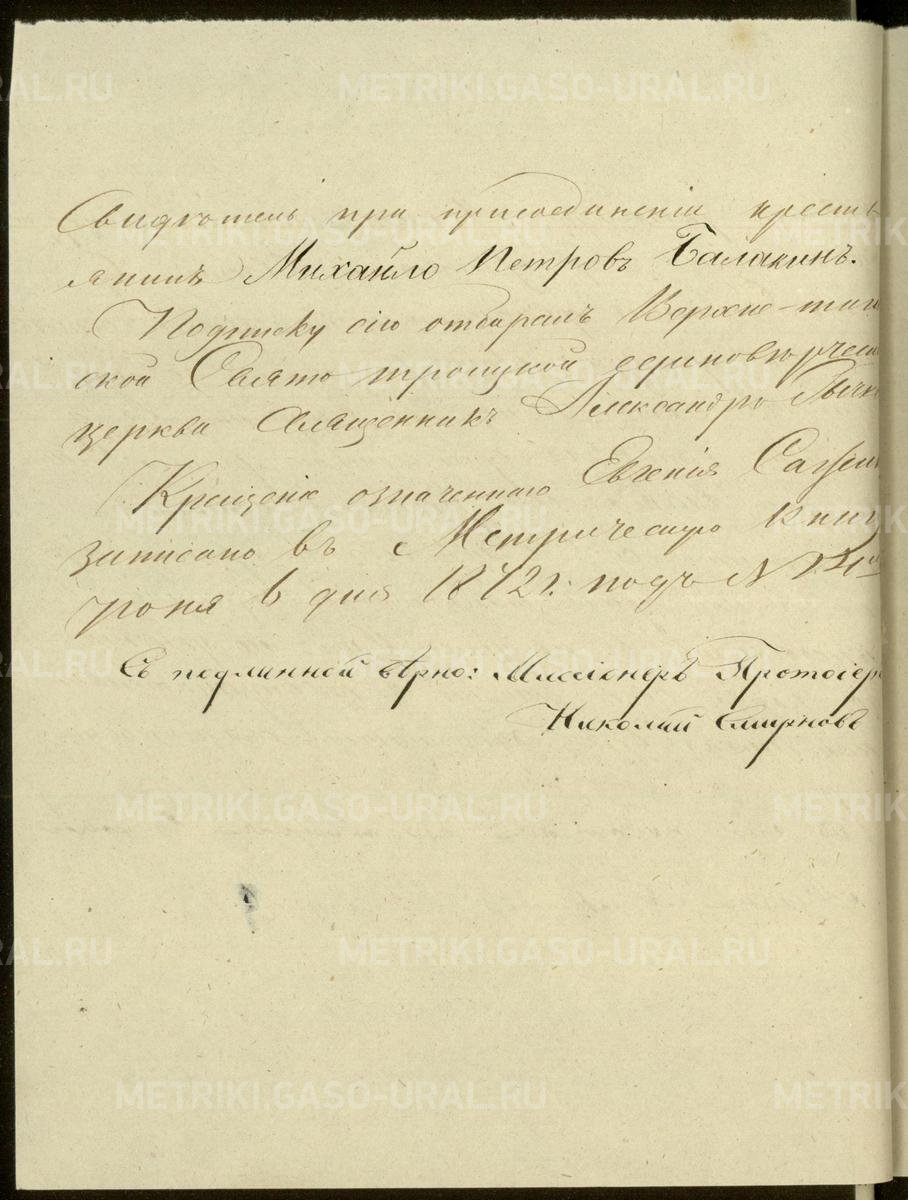 Свидѣтель при присоединеніи кресть
янинъ Михайло Петровъ Балакинъ.
Подписку сію отбиралъ Верхне-таги
ской Свято троицкой единовѣрческ
церкви Священникъ Александръ
Крещеніе означеннаго Евгенія
записано въ Метрическую книг
Іюня 6 дня 1872 г. подъ N
Съ подлинной вѣрно: Миссіонеръ Протоіер
Николай Смирновъ
METRIKI.GASO-URAL.RU